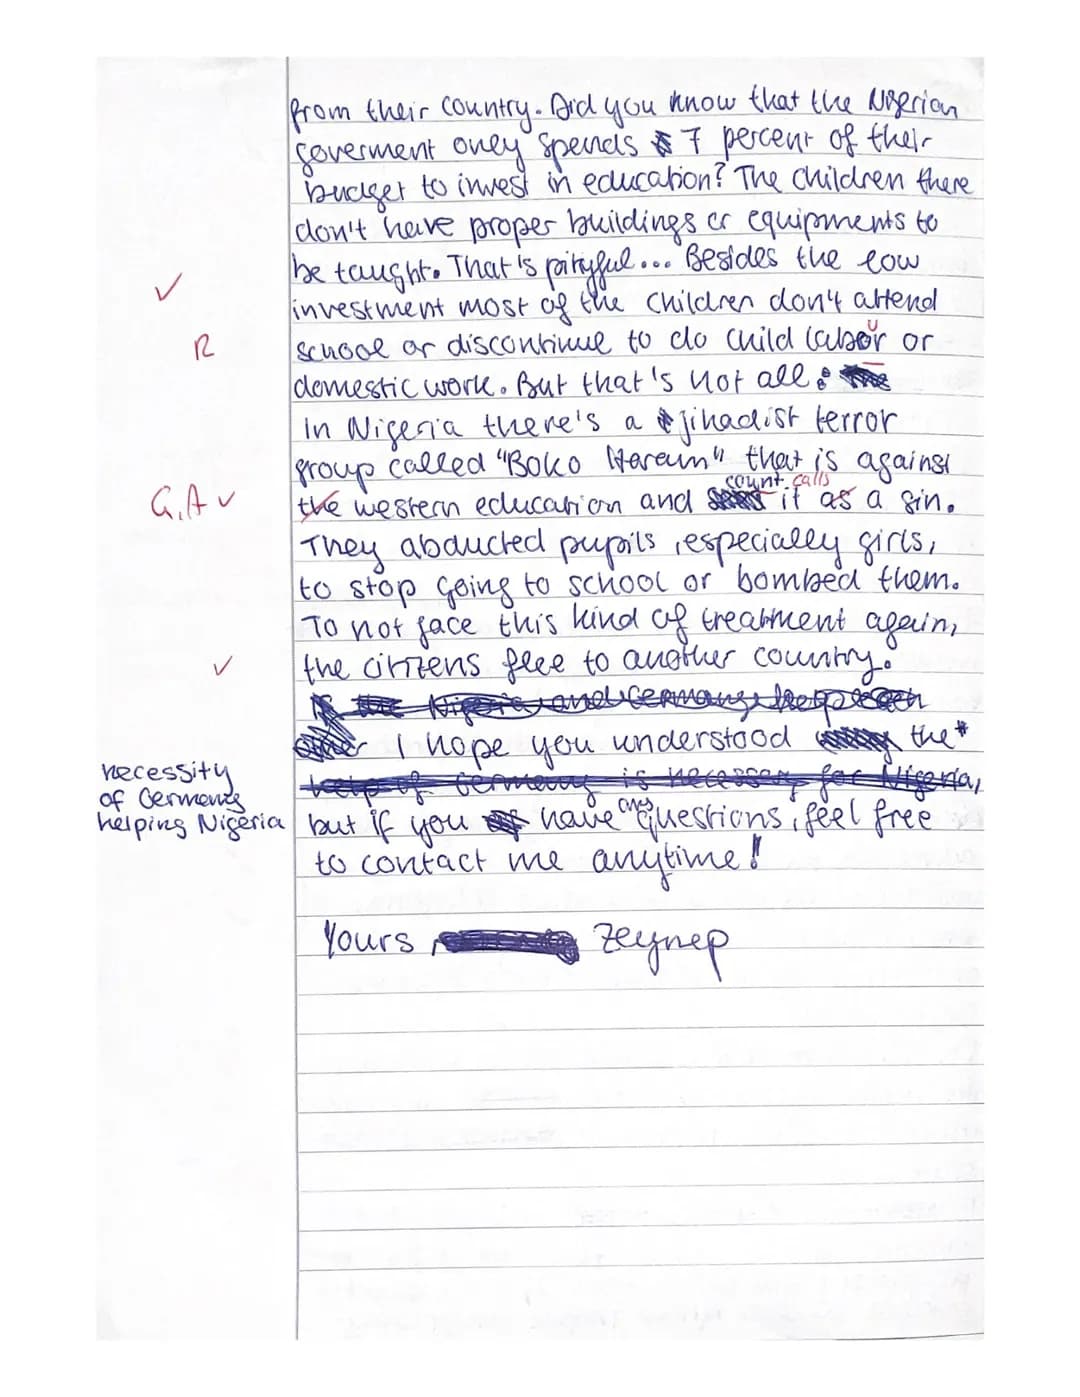 from their country. Did you know that the Nigerian
goverment only spends 7 percent of their
budget to invest in education? The children there
don't have proper buildings or equipments to
be taught. That's pityful... Besides the low
✓
investment most of the children don't attend
R
school or discontinue to do child labor or
u
domestic work. But that's not all:
In Nigeria there's a jihadist terror
group called "Boko Haram" that is against
count calls
G, A ✓
the western education and it as a sin.
They abducted pupils, especially girls,
to stop going to school or bombed them.
To not face this kind of treatment again,
✓
the citizens flee to another country.
If the Nigeria and Germany help each
other I hope you understood the*
help of Germany is necessary for Nigeria,
necessity
of Germany
helping Nigeria
but if you have any questions, feel free
to contact me anytime!
Yours, Zeynep